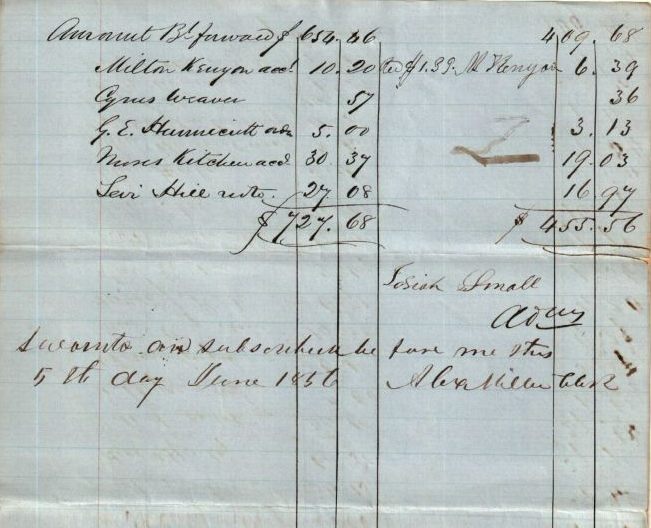 Amount Bt forward $ 654.46 409.68
Milton Kenyon acct 10.20 Red $1.39 M Kenyon 6.39
Cyrus Weaver 57 36
G. E. Hunnicutt order 5.00 3.13
Moses Kitchen acct 30 37 19.03
Levi Hill note. 27 08 16 97
$ 727.68 $ 455.56
Josiah Small
Adm
Swornto and subscribed be fore me this
5th day June 1856 Alex Miller Clerk